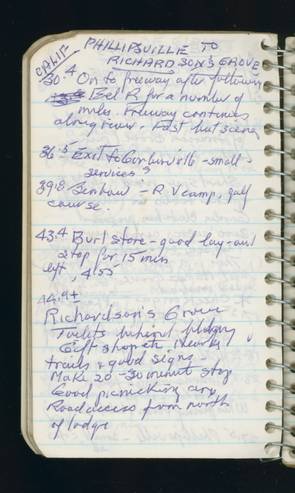 CALIF
PHILLIPSVILLE TO
RICHARDSON'S GROVE
30.4 On to freeway after following
Eel R for a number of
miles. Freeway continues
along river. Fast but scenic
36.5 Exit to Garberville - small -
services?
39.8 Benbow - RV camp, golf
course.
43.4 Burl store - good lay-out
stop for 15 mins
left, 4:55
44.9+
Richardson's Grove
Toilets behind bldgs
Gift shop etc nearby
trails & good signs -
Make 20-30 minute stop
Good picnicking area
Road access from north
of lodge